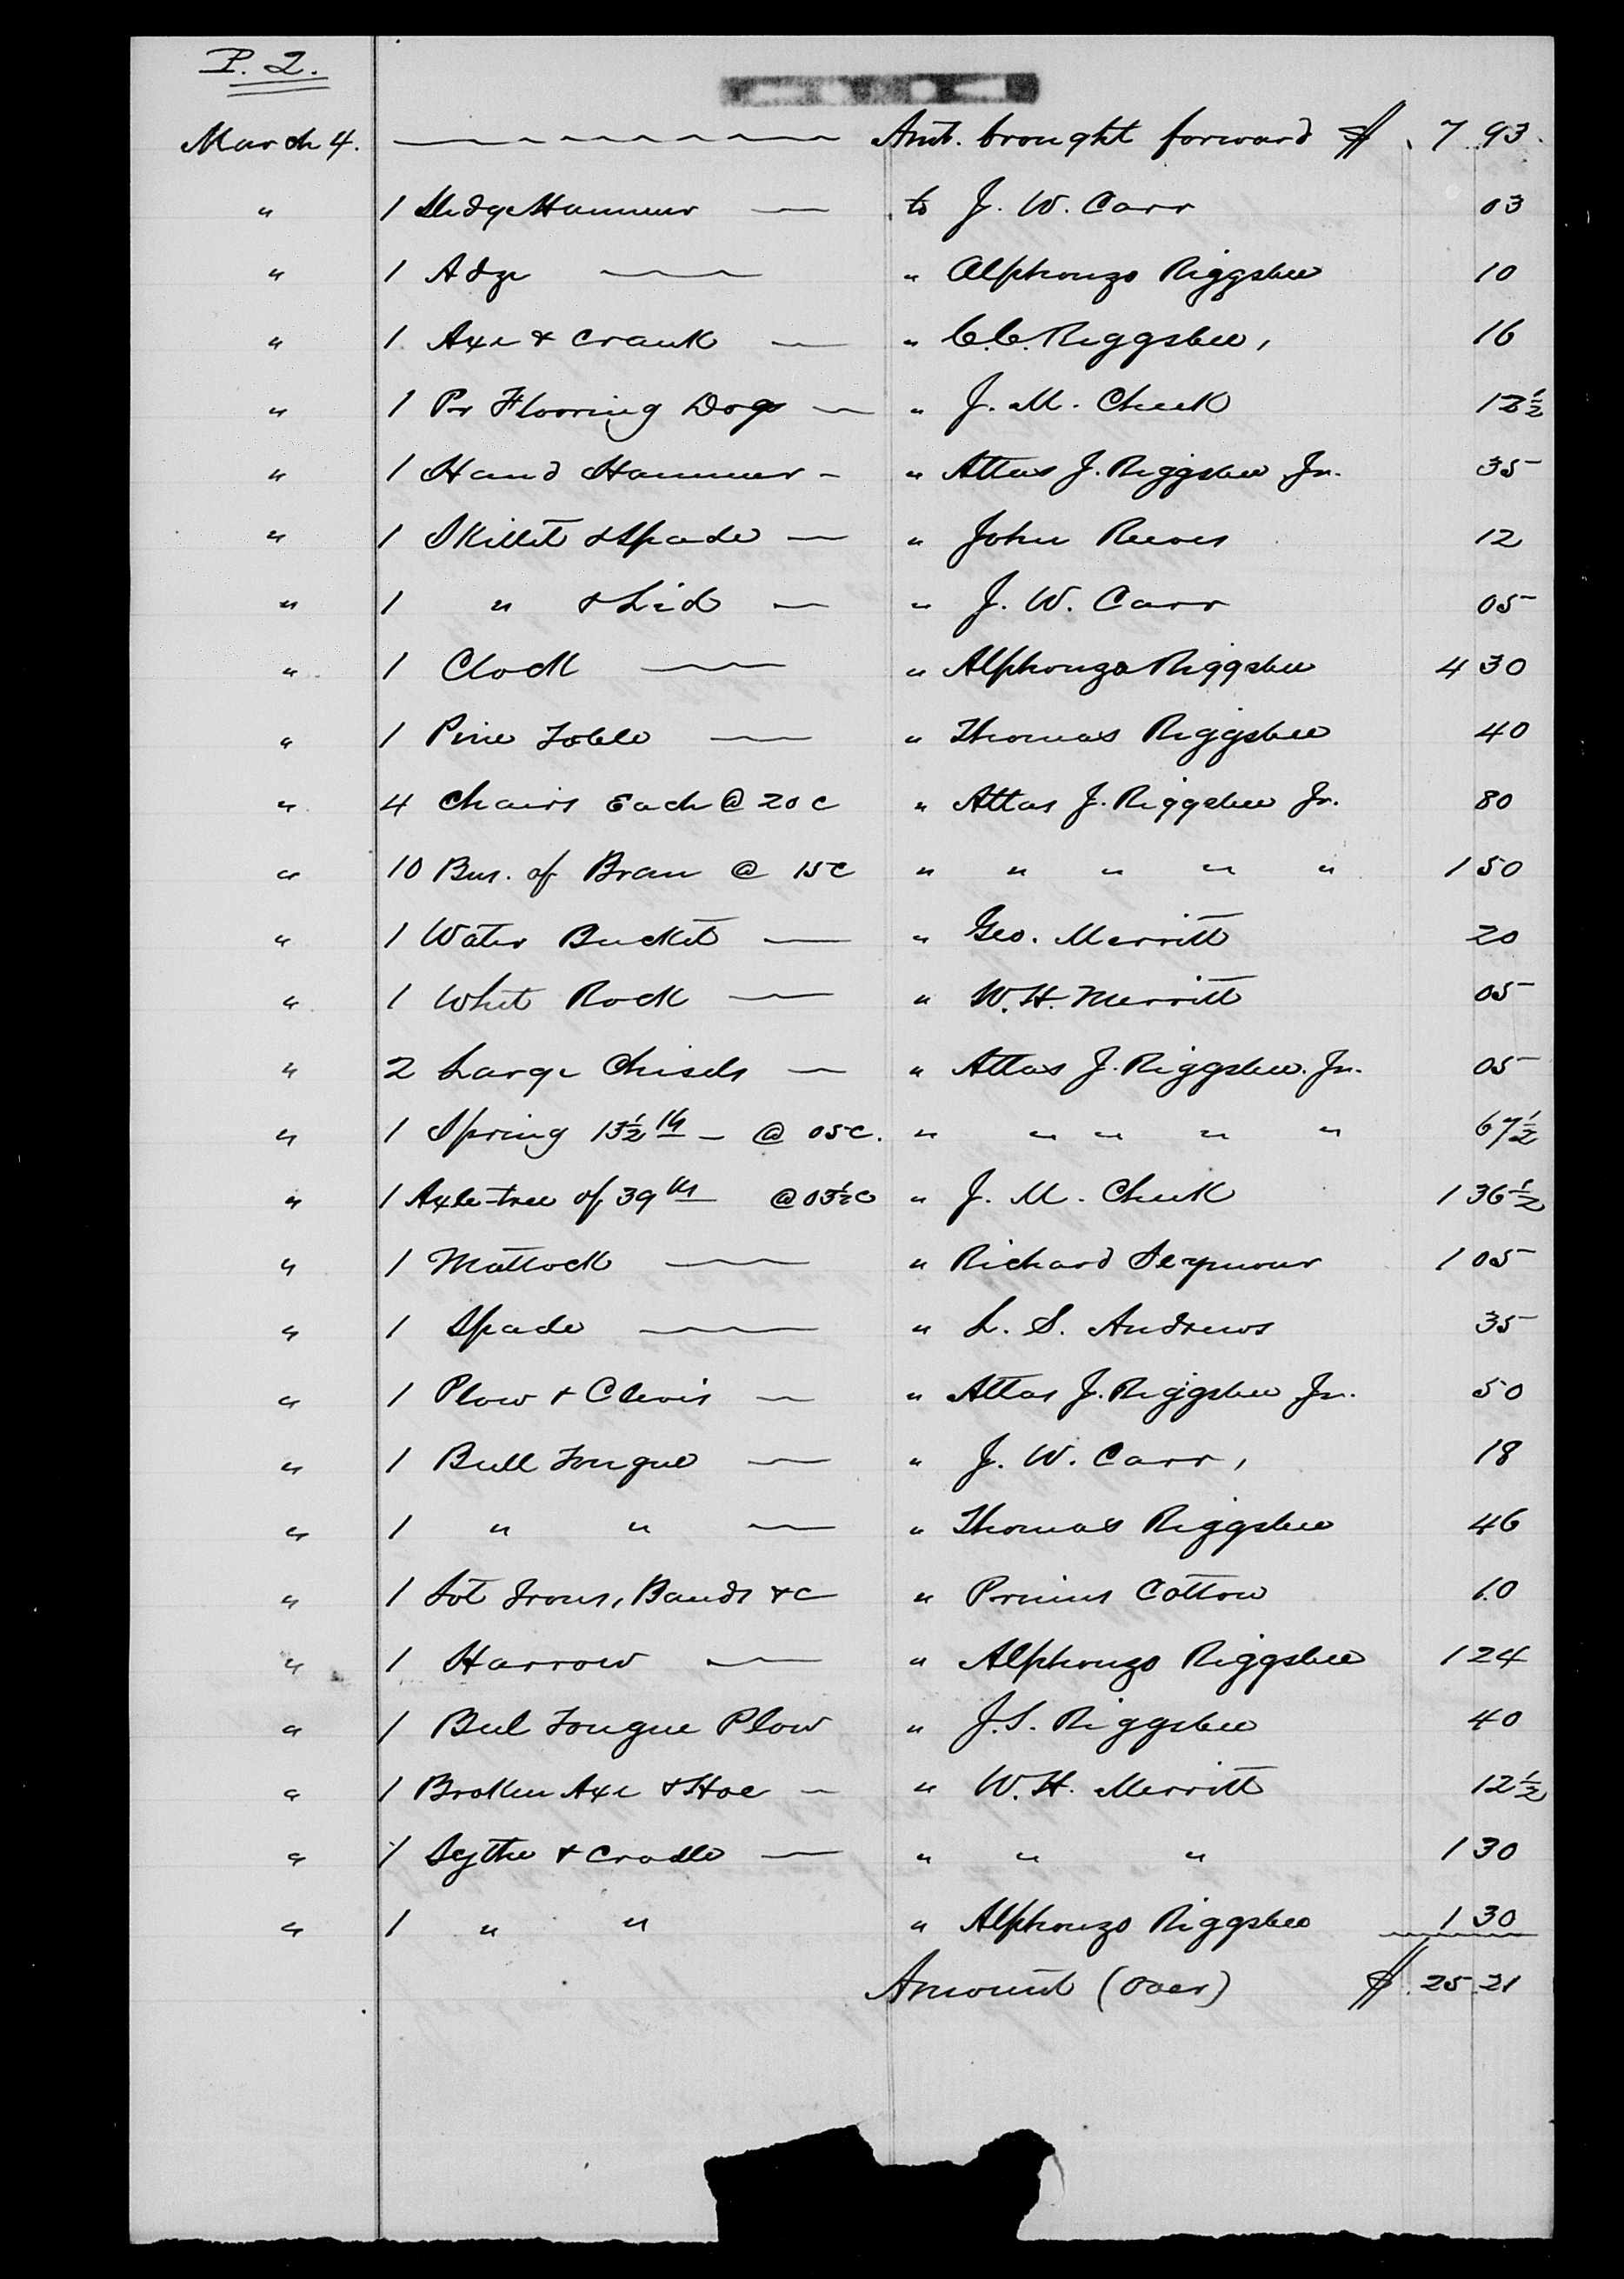 P. 2.
March 4. Amt. brought forward $ 7 93
" 1 Sledge Hammer — to J. W. Carr 03
" 1 Adze — " Alphonzo Riggsbee 10
" 1 Axe & Crank — " C.C. Riggsbee, 16
" 1 Pr Flooring Dogs — " J. M. Cheek 12½
" 1 Hand Hammer - " Atlas J. Riggsbee Jr. 35
" 1 Skillet & Spade — " John Reeves 12
" 1 " & Lid — " J. W. Carr 05
" 1 Clock — " Alphonzo Riggsbee 4 30
" 1 Pine Table — " Thomas Riggsbee 40
" 4 Chairs Each @ 20 c " Atlas J. Riggsbee Jr. 80
" 10 Bus. of Bran @ 15c " " " " " 1 50
" 1 Water Bucket — " Geo. Merritt 20
" 1 Whet Rock — " W. H. Merritt 05
" 2 Large Chisels — " Atlas J. Riggsbee Jr. 05
" 1 Spring 13½ lb — @ 05c. " " " " " 67½
" 1 Axle-tree of 39 lb @ 03½c " J. M. Cheek 1 36½
" 1 Mattock — " Richard Seymour 1 05
" 1 Spade — " L. S. Andrews 35
" 1 Plow & Clevis — " Atlas J. Riggsbee Jr. 50
" 1 Bull Tongue — " J. W. Carr, 18
" 1 " " — " Thomas Riggsbee 46
" 1 Lot Irons, Bands &c " Primus Cotton 60
" 1 Harrow — " Alphonzo Riggsbee 1 24
" 1 Bul Tongue Plow " J. S. Riggsbee 40
" 1 Broken Axe & Hoe — " W. H. Merritt 12½
" 1 Sythe & Cradle — " " " 1 30
" 1 " " " Alphonzo Riggsbee 1 30
Amount (Over) $ 25.21